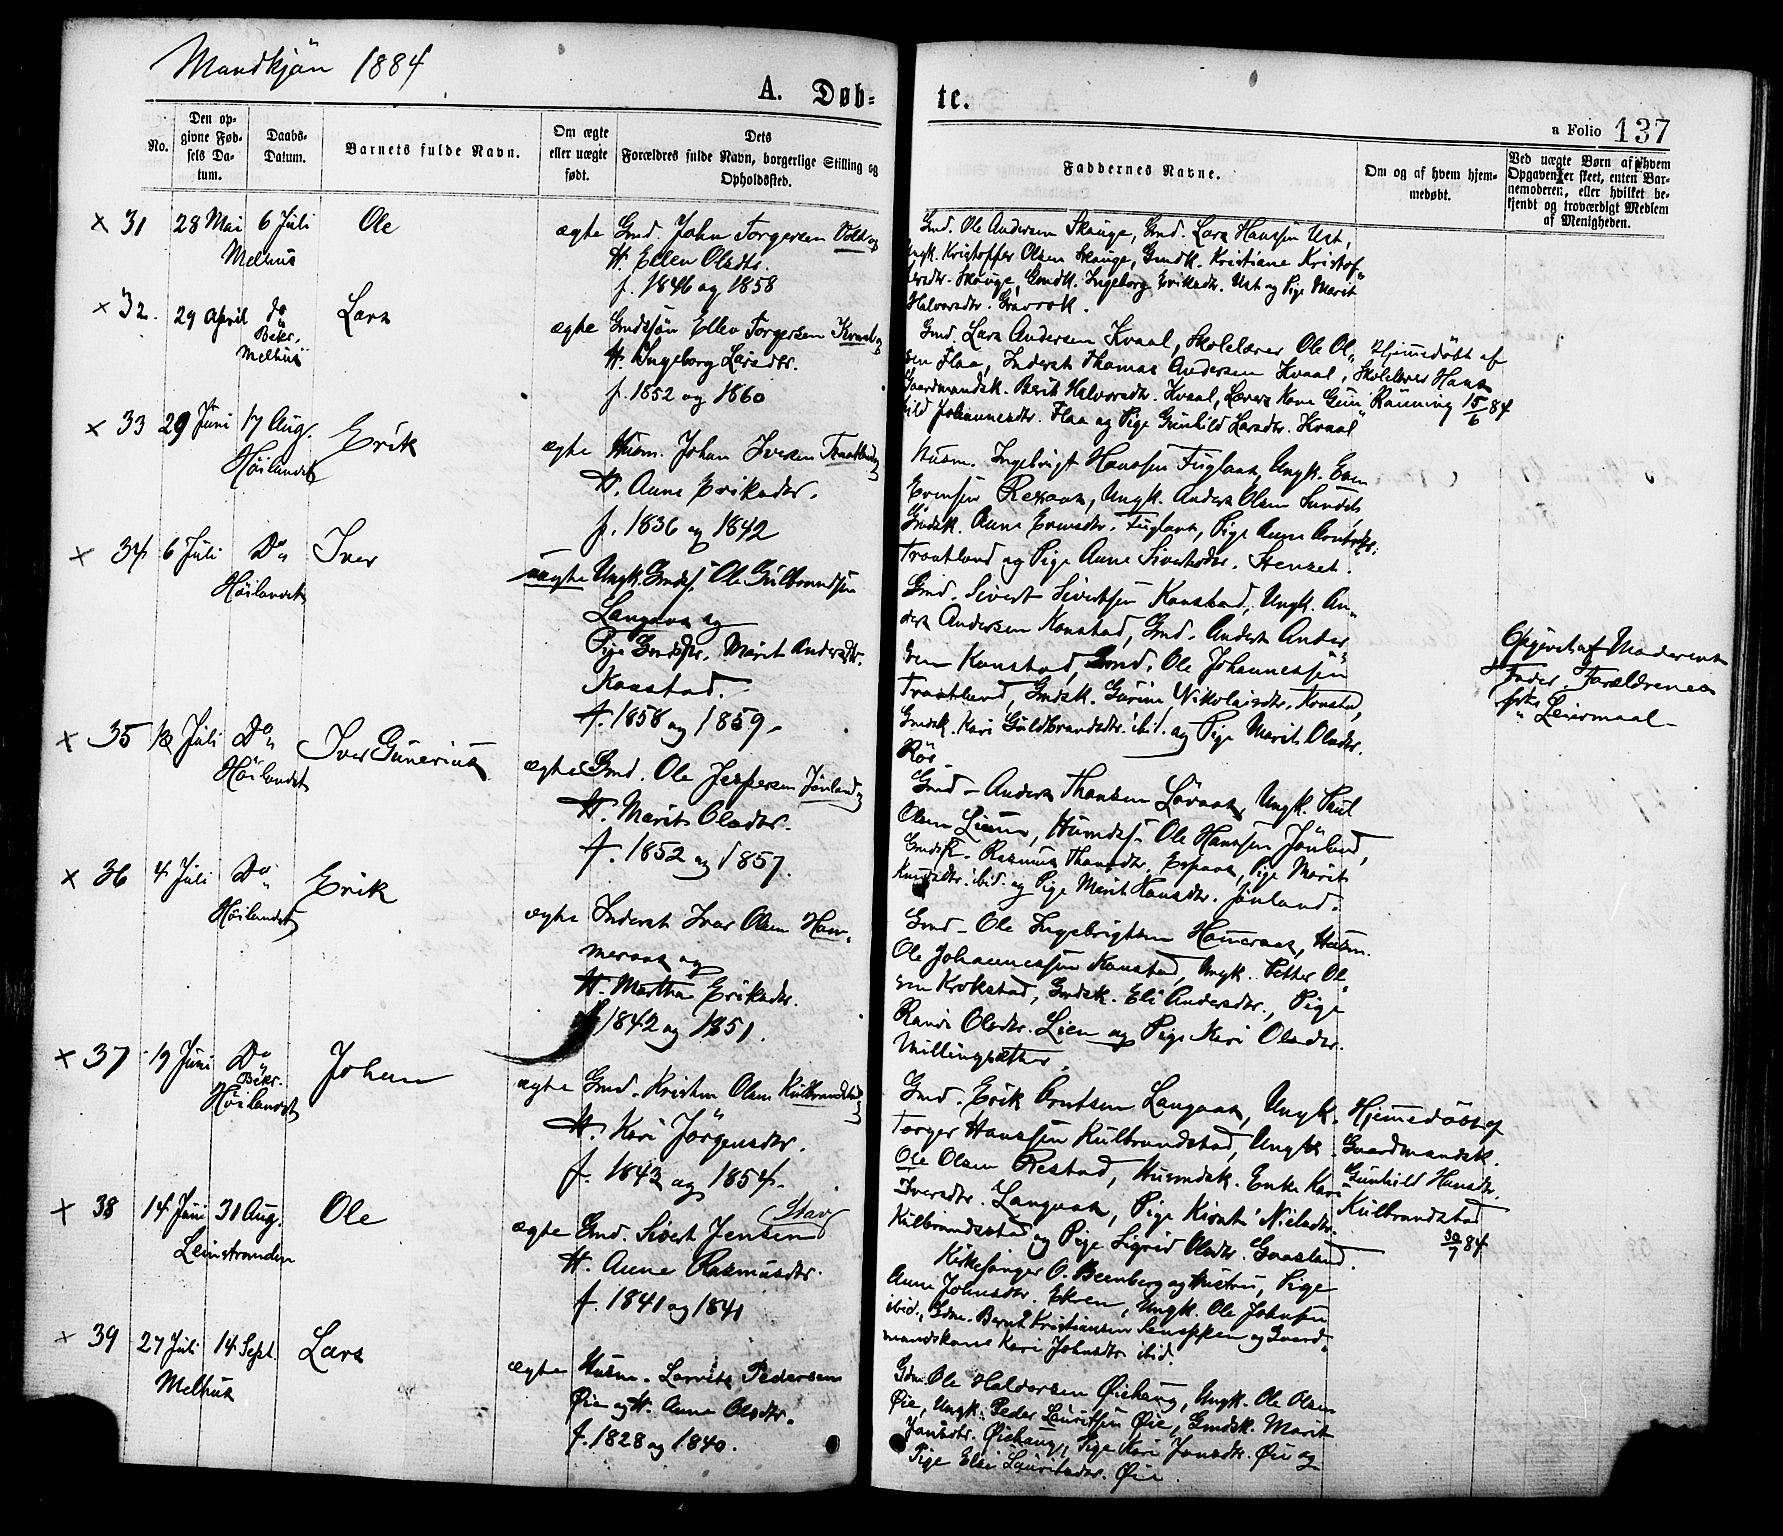 Mandkjön 1884
A. Døb=
te.
a Folio 137
No.
Den op-
givne Fød-
sels Da-
tum.
Daabs-
Datum.
Barnets fulde Navn.
Om ægte
eller uægte
født.
Dets
Forældres fulde Navn, borgerlige Stilling og
Opholdssted.
Faddernes Navne.
Om og af hvem hjem-
medøbt.
Ved uægte Børn af hvem
Opgaven er skeet, enten Bar-
nemoderen, eller hvilket be-
kjendt og troværdigt Medlem
af Menigheden.
× 31 28 Mai 6 Juli Ole ægte Gmd. John Torgersen
Melhus
H. Ellen Olsdtr.
f. 1846 og 1858
Gmd. Ole Andersen Skauge, Gmd. Lars Hanssen Ust,
Ungk. Kristoffer Olsen Skauge, Gmdk. Kristiane Kristof-
fersdtr. Skauge, Gmdk. Ingeborg Eriksdtr. Ust og Pige Marit
Halvorsdtr. Gravrok.
× 32. 29 April do Lars ægte Gmdssøn Ellev Torgersen Kvaal og
Bekr.
Melhus
H. Ingeborg Larsdtr.
f. 1852 og 1860
Gmd. Lars Andersen Kvaal, Skolelærer Ole Ol-
sen Flaa, Inderst Thomas Andersen Kvaal,
Gaardmandsk. Berit Halvorsdtr. Kvaal, Lærers Kone Gun-
ild Johannesdtr. Flaa og Pige Gunhild Larsdtr. Kvaal
Hjemmedöbt af
Skolelærer Hans
Rönning 15/6 84
× 33 29 Juni 17 Aug. Erik ægte Husm. Johan Iversen
Höilandet
H. Anne Eriksdtr.
f. 1836 og 1842
Husm. Ingebrigt Hanssen Fuglaas, Ungk. Even
Evensen, Ungk. Anders Olsen
Gmdsk. Anne Evensdtr. Fuglaas, Pige Anne
Traatland og Pige Anne Sivertsdtr.
× 34 6 Juli Do Iver uægte Ungk. Gmds. Ole Gulbrandsen
Höilandet
Langaas og
Pige Gmdsdtr. Marit Andersdtr.
Konstad.
f. 1858 og 1859
Gmd. Sivert Sivertsen Konstad, Ungk. An-
ders Andersen Konstad, Gmd. Anders Ander-
sen Konstad, Gmd. Ole Johannessen
Traatland, Gmdsk. Gurine Nikolaisdtr. Konstad,
Gmdsk. Kari Guldbrandsdtr. ibid. og Pige Marit Olsdtr.
Röe
Opgivet af Moderens
Fader. Forældrenes
Leiermaal
× 35 12 Juli Do Iver Gunerius ægte Gmd. Ole Jespersen Jønland og
Höilandet
H. Marit Olsdtr.
f. 1852 og 1857.
Gmd Anders Thomsen, Ungk. Paul
Olsen, Ole Hanssen Jönland,
Gmdsk. Rasmus, Pige Marit
ibid. og Pige Marit Hansdtr. Jönland.
× 36 4 Juli Do Erik ægte Inderst Ivar Olsen Ham-
Höilandet
meraas og
H. Martha Eriksdtr.
f. 1842 og 1851.
Gmd Ole Ingebrigtsen Hameraas, Husm.
Ole Johannessen Konstad, Ungk. Petter Ol-
sen Krokstad, Gmdsk. Eli Andersdtr., Pige
Randi Olsdtr. Lien og Pige Kari Olsdtr.
Millingsæther.
× 37 19 Juni Do Johan ægte Gmd. Kristen Olsen Kulbrandstad
Bekr.
Höilandet
H. Kari Jörgensdtr.
f. 1843 og 1854
Gmd. Erik Arntsen Langaas, Ungk.
Torger Hanssen Kulbrandstad, Ungk.
Ole Olsen Restad, Husmdsk. Enke Kari
Iversdtr. Langaas, Pige Nielsdtr.
Kulbrandsstad og Pige Sigrid Olsdtr. Gaasland.
Hjemmedöbt af
Gaardmandsk.
Gunhild Hansdtr.
Kulbrandstad
30/7 84
× 38 14 Juni 31 Aug. Ole ægte Gmd. Sivert Jensen Stav
Leinstranden
H. Anne Rasmusdtr.
f. 1841 og 1841
Kirkesanger O. Beenberg og Hustru, Pige
Anne Johnsdtr. Ekren, Ungk. Ole Johnsen
ibid., Gdm. Bernt Kristiansen og Gaard-
mandskone Kari Johnsdtr. ibid.
× 39 27 Juli 14 Sept. Lars ægte Husm. Lorents Pedersen
Melhus
Øie og H. Anne Olsdtr.
f. 1828 og 1840.
Gdm. Ole Haldorsen Øiehaug, Ungk. Ole Olsen
Øie, Ungk. Peder Lauritsen Øie, Gmdsk. Marit
Jonsdtr. Øiehaug, Pige Kari Jonsdtr. Øie og
Pige Elen Lauritsdtr. Øie.